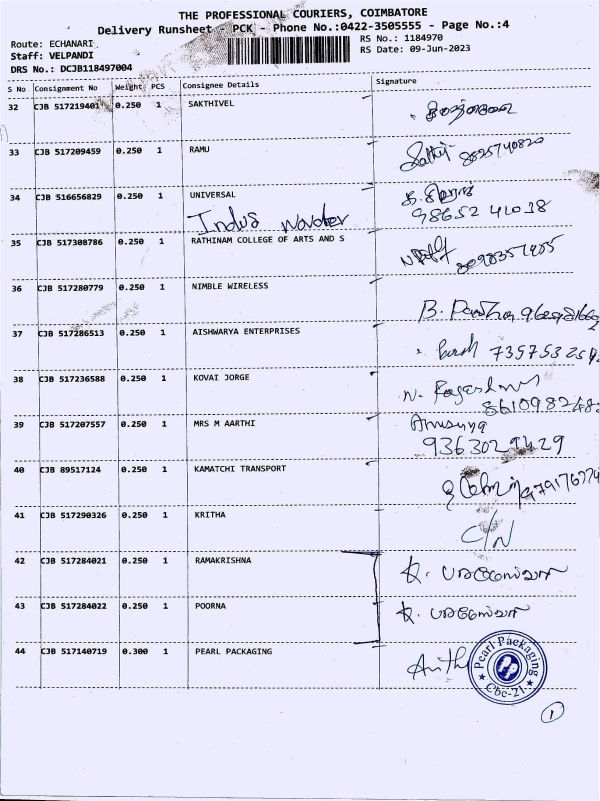 THE PROFESSIONAL COURIERS, COIMBATORE
Delivery Runsheet - PCK - Phone No.:0422-3505555 - Page No.:4
Route: ECHANARI
Staff: VELPANDI
DRS No.: DCJB118497004
RS No.: 1184970
RS Date: 09-Jun-2023
S No Consignment No Weight PCS Consignee Details Signature
32 CJB 517219401 0.250 1 SAKTHIVEL
33 CJB 517209459 0.250 1 RAMU 8825740820
34 CJB 516656829 0.250 1 UNIVERSAL
Indus 98652 41038
35 CJB 517308786 0.250 1 RATHINAM COLLEGE OF ARTS AND S
36 CJB 517280779 0.250 1 NIMBLE WIRELESS
37 CJB 517286513 0.250 1 AISHWARYA ENTERPRISES
38 CJB 517236588 0.250 1 KOVAI JORGE
39 CJB 517207557 0.250 1 MRS M AARTHI Amsunya
9363029429
40 CJB 89517124 0.250 1 KAMATCHI TRANSPORT
41 CJB 517290326 0.250 1 KRITHA C/N
42 CJB 517284021 0.250 1 RAMAKRISHNA
43 CJB 517284022 0.250 1 POORNA
44 CJB 517140719 0.300 1 PEARL PACKAGING
Pearl Packaging
Cbe-21
1